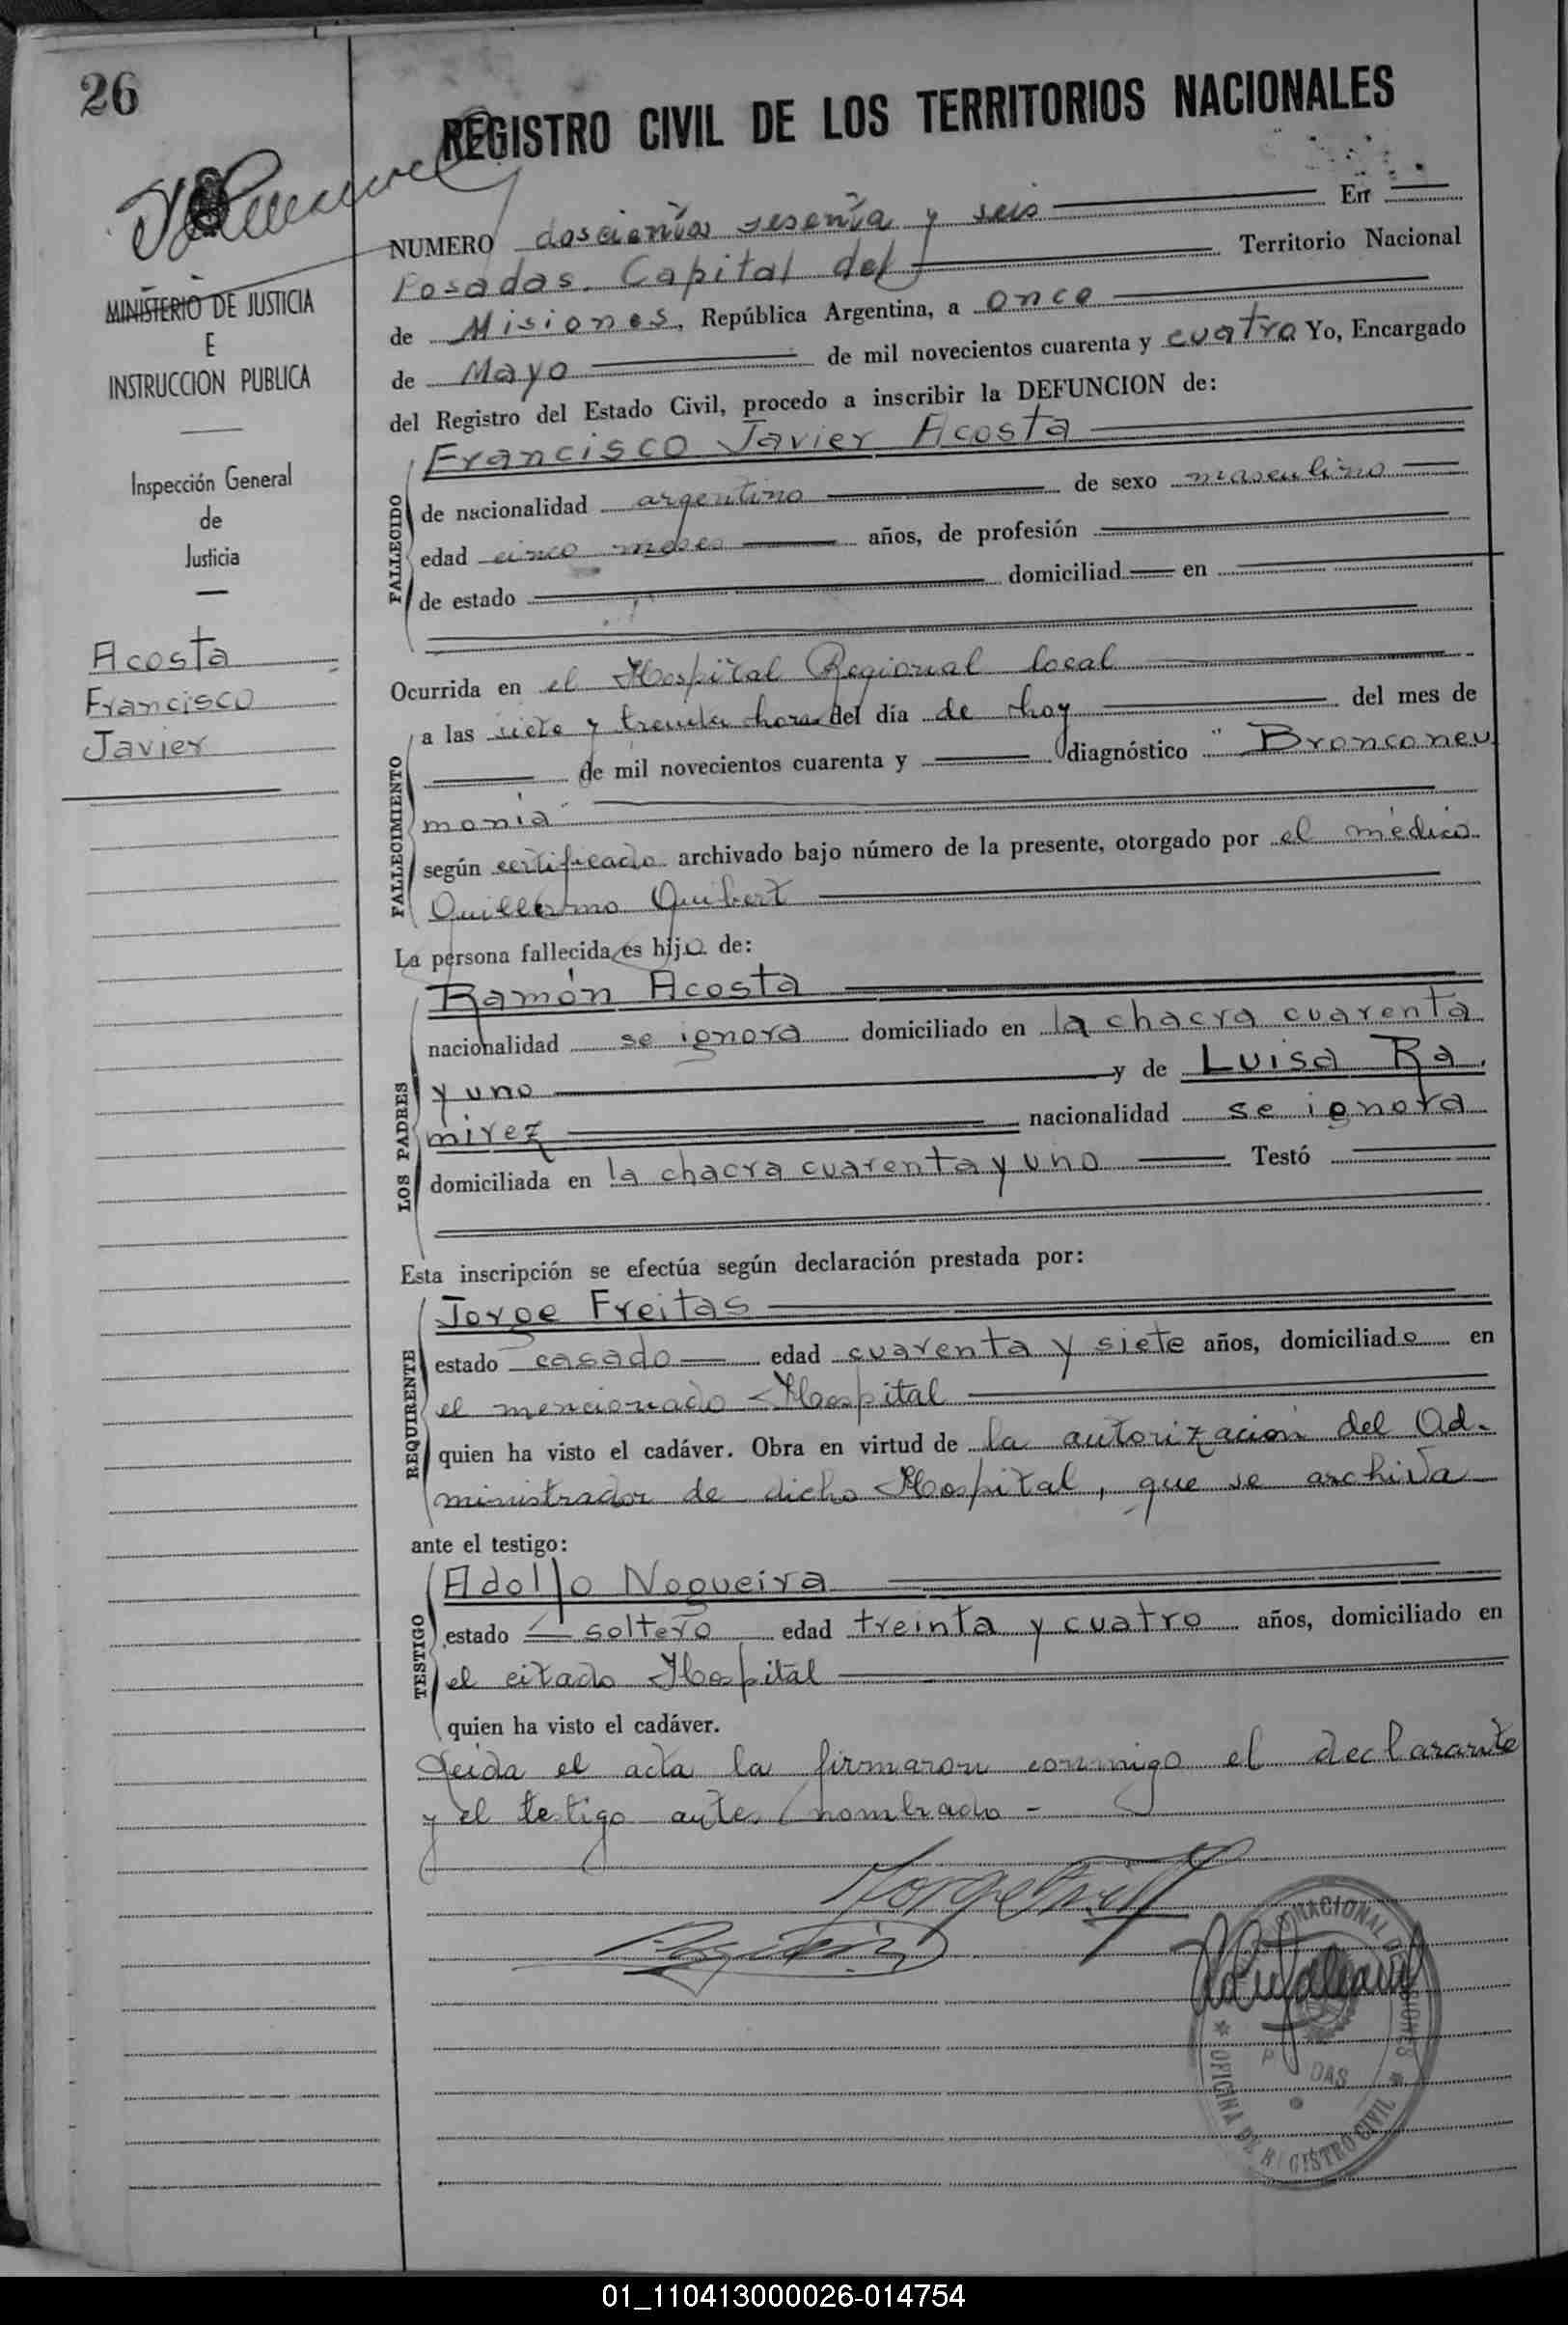 26
REGISTRO CIVIL DE LOS TERRITORIOS NACIONALES
NUMERO doscientos sesenta y seis En
Posadas. Capital del Territorio Nacional
de Misiones, República Argentina, a once
de Mayo de mil novecientos cuarenta y cuatro Yo, Encargado
del Registro del Estado Civil, procedo a inscribir la DEFUNCION de:
MINISTERIO DE JUSTICIA
E
INSTRUCCION PUBLICA
Inspección General
de
Justicia
Acosta
Francisco
Javier
FALLECIDO
Francisco Javier Acosta
de nacionalidad argentino de sexo masculino
edad cinco meses años, de profesión
de estado domiciliad en
Ocurrida en el Hospital Regional local
FALLECIMIENTO
a las siete y treinta horas del día de hoy del mes de
de mil novecientos cuarenta y diagnóstico " Bronconeu
monia
según certificado archivado bajo número de la presente, otorgado por el médico
Guillermo Guibert
La persona fallecida es hijo de:
LOS PADRES
Ramón Acosta
nacionalidad se ignora domiciliado en la chacra cuarenta
y uno y de Luisa Ra.
mirez nacionalidad se ignora
domiciliada en la chacra cuarenta y uno Testó
Esta inscripción se efectúa según declaración prestada por:
REQUIRENTE
Jorge Freitas
estado casado edad cuarenta y siete años, domiciliado en
el mencionado Hospital
quien ha visto el cadáver. Obra en virtud de la autorización del Ad-
ministrador de dicho Hospital, que se archiva
ante el testigo:
TESTIGO
Adolfo Nogueira
estado soltero edad treinta y cuatro años, domiciliado en
el citado Hospital
quien ha visto el cadáver.
Leida el acta la firmaron conmigo el declarante
y el testigo antes nombrado -
OFICINA DE REGISTRO CIVIL
01_110413000026-014754